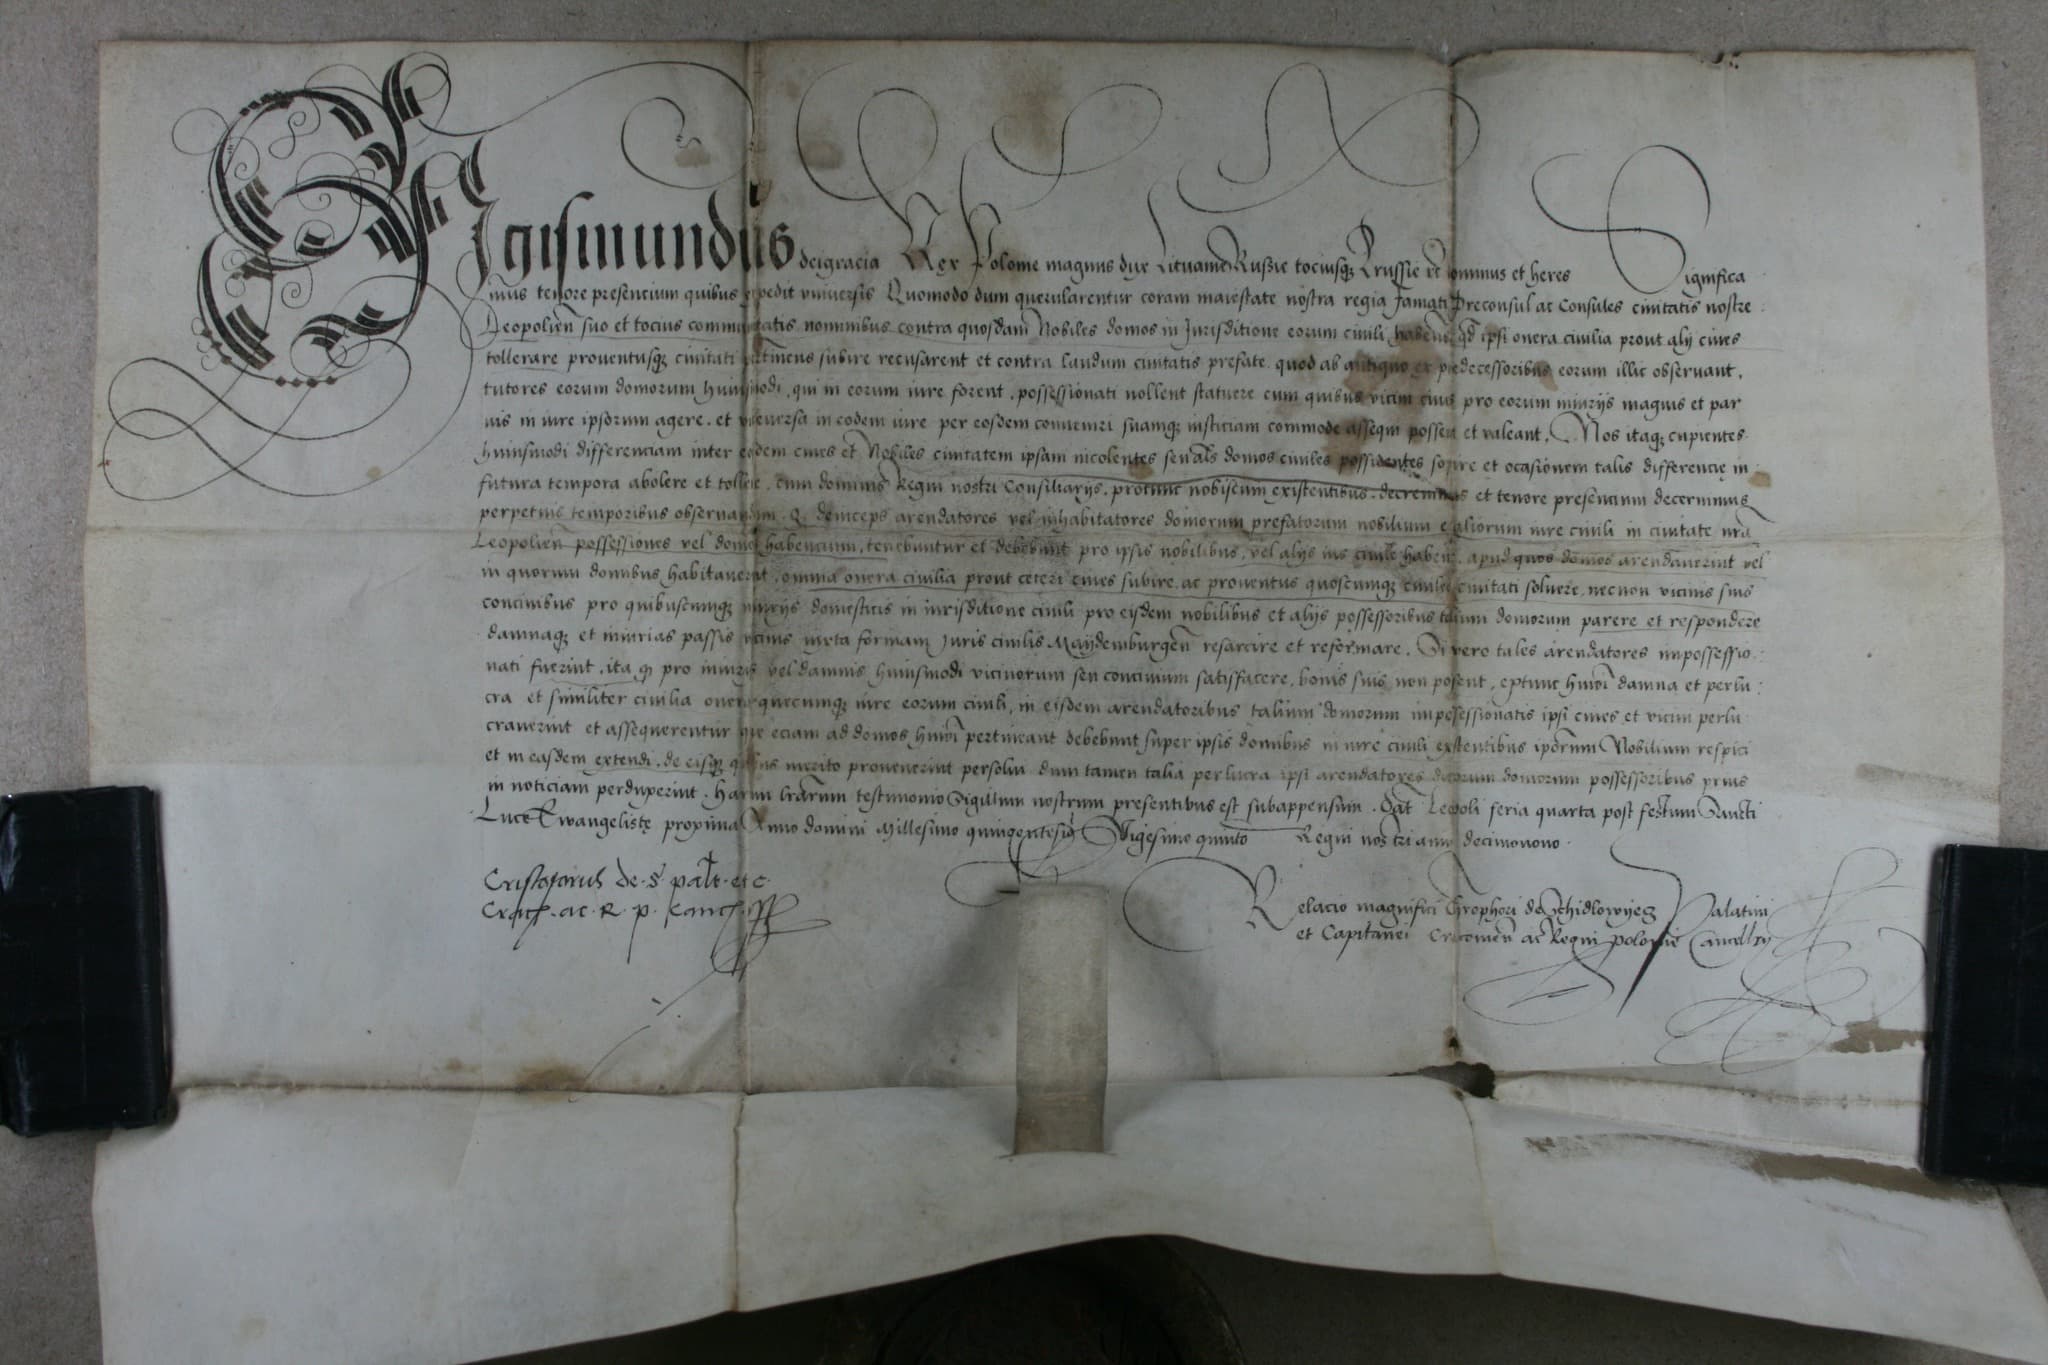 Sigismundus dei gracia Rex Polonie magnus dux Lituanie Russie tociusq Prussie etc dominus et heres Significa
mus tenore presencium quibus expedit vniversis Quomodo dum querularentur coram maiestate nostra regia famati Preconsul ac Consules civitatis nostre
Leopolien suo et tocius communitatis nominibus contra quosdam Nobiles domos in Jurisditione eorum civili haben qd ipsi onera civilia prout alij cives
tollerare proventusq civitati pertinens subire recusarent et contra laudum civitatis prefate quod ab antiquo ex predecessoribus eorum illic observant,
tutores eorum domorum huiusmodi, qui in eorum iure forent, possessionati nollent statuere cum quibus vicini eius pro eorum iniurijs magnis et par
uis in iure ipsorum agere, et viceversa in eodem iure per eosdem conveniri suamq insticiam commode assequi possent et valeant, Nos itaq cupientes
huiusmodi differenciam inter eosdem cives et Nobiles civitatem ipsam incolentes seu als domos civiles possidentes sopire et ocasionem talis differencie in
futura tempora abolere et tollere, cum dominis Regni nostri Consiliarijs, protunc nobiscum existentibus, decrevimus et tenore presencium decernimus
perpetuis temporibus observandum, q deinceps arendatores vel inhabitatores domorum prefatorum nobilium et aliorum iure civili in civitate nra
Leopolien possessiones vel domos habencium, tenebuntur et debebunt pro ipsis nobilibus, vel alijs ius civile haben, apud quos domos arendaverint vel
in quorum domibus habitaverint, omnia onera civilia prout ceteri cives subire, ac proventus quoscumq civiles civitati solvere, necnon vicinis suis
concivibus pro quibuscumq iniurijs domesticis in iurisditione civili pro eisdem nobilibus et alijs possessoribus talium domorum parere et respondere
damnaq et iniurias passis vicinis iuxta formam Juris civilis Maydemburgen resarcire et reformare. Si vero tales arendatores impossessio
nati fuerint, ita q pro iniurijs vel damnis huiusmodi vicinorum seu concivium satisfacere, bonis suis non possent, extunc huiusmoi damna et perlu
cra et similiter civilia onera quecumq iure eorum civili, in eisdem arendatoribus talium domorum impossessionatis ipsi cives et vicini perlu
craverint et assequerentur que eciam ad domos huiusmoi pertineant debebunt super ipsis domibus in iure civili existentibus ipsorum Nobilium respici
et in easdem extendi, de eisq quibus merito provenerint persolvi dum tamen talia perlucra ipsi arendatores dictorum domorum possessoribus prius
in noticiam perduxerint. Harum lrarum testimonio Sigillum nostrum presentibus est subappensum. Dat Leopoli feria quarta post festum Sancti
Luce Ewangeliste proxima Anno domini Millesimo quingentesimo Vigesimo quinto Regni nostri anno decimonono.
Cristoforus de S. palt. etc
Crac. ac R. p. Canc. sst
Relacio magnifici Cristophori de Schidlowyecz Palatini
et Capitanei Cracovien ac Regni polonie Cancellrij